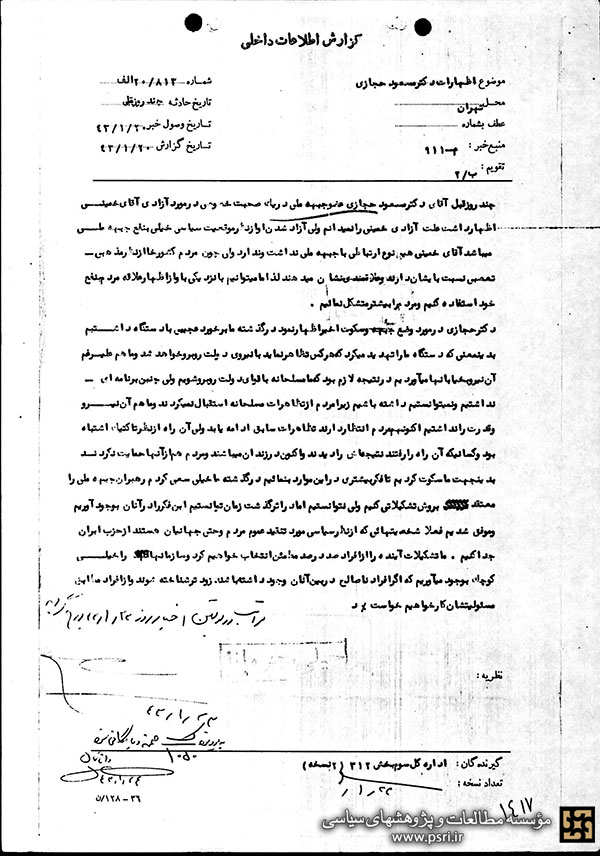 گزارش اطلاعات داخلی
موضوع اظهارات دکتر مسعود حجازی
شماره ۲۰/۸۱۳ الف
محل تهران
تاریخ حادثه چند روز قبل
عطف بشماره
تاریخ وصول خبر ۴۳/۱/۲۰
منبع خبر : ۹۱۱
تاریخ گزارش ۴۳/۱/۲۰
تقویم : ب/۲
چند روز قبل آقای دکتر مسعود حجازی عضو جبهه ملی در یک صحبت خصوصی در مورد آزادی آقای خمینی
اظهار داشت علت آزادی خمینی را نمیدانم ولی آزاد شدن او از نظر موقعیت سیاسی خیلی بنفع جبهه ملی
میباشد آقای خمینی هیچ نوع ارتباطی با جبهه ملی نداشت و ندارد ولی چون مردم کشور خاه از نظر مذهبی
تعصبی نسبت بایشان دارند و علاقمندی نشان میدهند لذا ما میتوانیم با نزدیکی با او از اظهار علاقه مردم بنفع
خود استفاده کنیم و مردم را بیشتر متشکل نمائیم .
دکتر حجازی در مورد وضع جبهه و سکوت اخیر اظهار نمود در گذشته ما برخورد عجیبی با دستگاه داشتیم
بدینمعنی که دستگاه ما را تهدید میکرد که هر کس تظاهر نماید با نیروی دولت روبرو خواهد شد و ما هم علیرغم
آن نیرو بخیابانها میآمدیم در نتیجه لازم بود که ما مسلحانه با قوای دولت روبرو شویم ولی چنین برنامه ای
نداشتیم و نمیتوانستیم داشته باشیم زیرا مردم از تظاهرات مسلحانه استقبال نمیکردند و ما هم آن نیرو
و قدرت را نداشتیم اکنون هم مردم انتظار دارند تظاهرات سابق ادامه یابد ولی آن راه از نظر تاکتیک اشتباه
بود و کسانیکه آن راه را رفتند نتیجه‌اش را دیدند و اکنون در زندان میباشند و مردم هم از آنها حمایت نکردند
بدینجهت ما سکوت کردیم تا فکر بیشتری در این موارد بنمائیم در گذشته ما خیلی سعی کردیم رهبران جبهه ملی را
معتقد بروش تشکیلاتی کنیم ولی نتوانستیم اما در اثر گذشت زمان توانستیم این فکر را در آنان بوجود آوریم
و موفق شدیم فعلا شخصیتهائی که از نظر سیاسی مورد تنقید عموم مردم و حتی جهانیان هستند از حزب ایران
جدا کنیم . ما تشکیلات آینده را از افراد صد در صد مطمئن انتخاب خواهیم کرد و سازمانها را خیلی
کوچک بوجود میآوریم که اگر افراد ناصالح در بین آنان وجود داشته باشد زودتر شناخته شوند و از افراد مطابق
مسئولیتشان کار خواهیم خواست
نظریه :
۴۳/۱/۲۳
گیرندگان : اداره کل سوم بخش ۳۱۲ (۲ نسخه)
تعداد نسخه :
۵/۱۲۸-۳۶
۱۴۱۷
مؤسسه مطالعات و پژوهشهای سیاسی
www.psri.ir